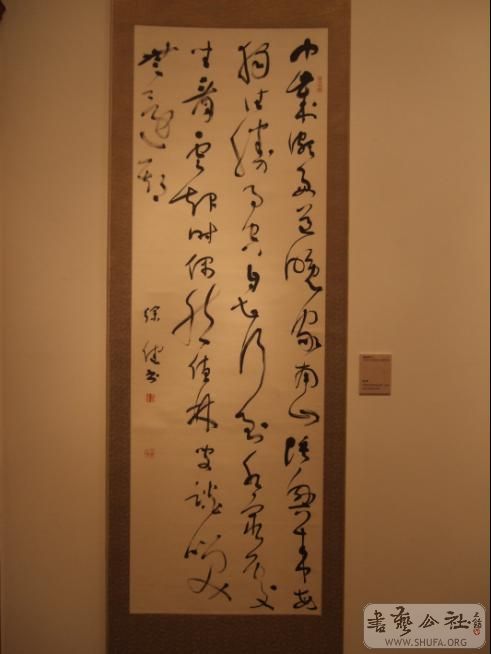 中歲頗好道晚家南山陲興來每
獨往勝事空自知行到水窮處
坐看雲起時偶然值林叟談笑
無還期
徐健書
書藝公社
WWW.SHUFA.ORG